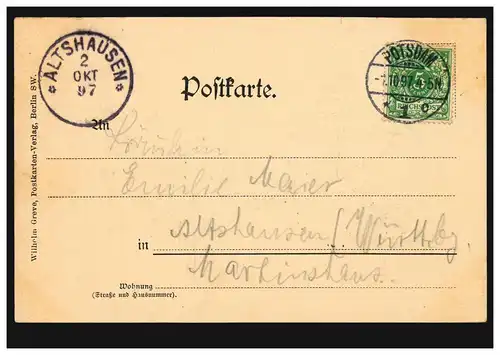 ALTSHAUSEN
2
OKT
97
Postkarte.
POTSDAM
1.10.97. 4-5N
1 o
REICHSPOST
An
Fräulein
Emilie Maier
Altshausen/Württbg
in
Martinshaus.
Wohnung
(Straße und Hausnummer).
Wilhelm Greve, Postkarten-Verlag, Berlin SW.